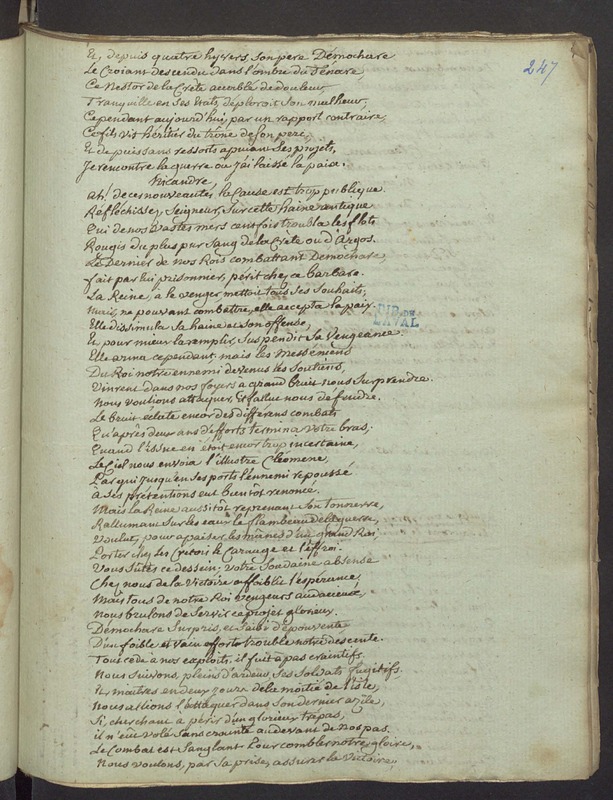 247
Et, depuis quatre hyvers, son pere Démochare
Le Croiant descendu dans l'ombre du Ténare
Ce Nestor de la Crète accablé de douleur,
Tranquille en ses Etats, déploroit son malheur,
Cependant aujourd'hui, par un rapport contraire,
Ce fils vit héritier du trône de son pere,
Et de puissans ressorts apuiant ses projets,
Je rencontre la guerre où j'ai laissé la paix.
Nicandre,
ah! de ces nouveautés, la Cause est trop publique.
Réfléchissez, Seigneur, sur cette haine antique
Qui de nos vastes mers cent fois troubla les flots
Rougis du plus pur Sang de la Crète ou d'Argos.
Le Dernier de nos Rois combattant Démochare,
fait par lui prisonnier, périt chez ce barbare.
La Reine, a le venger mettoit tous ses Souhaits;
mais, ne pouvant combattre, elle accepta la paix.
Elle dissimula Sa haine et son offense,
Et pour mieux la remplir, suspendit sa Vengeance.
Elle arma cependant. mais les Messéniens
Du Roi notre ennemi devenus les Soutiens,
Vinrent dans nos foyers a grand bruit nous Surprendre.
Nous voulions attaquer, il fallut nous défendre.
Le bruit éclate encor des différans combats
Qu'après deux ans d'efforts termina votre bras;
Quand l'issue en étoit encor trop incertaine,
Le Ciel nous envoia l'illustre Cléomene,
Par qui jusqu'en ses ports l'ennemi repoussé
à Ses prétentions eut bientôt renoncé.
Mais la Reine aussitôt reprenant Son tonnerre,
Rallumant Sur les eaux le flambeau de la guerre,
Voulut, pour apaiser les manes d'un grand Roi
Porter chez les Cretois le Carnage et l'effroi.
Vous sûtes ce dessein; votre Soudaine absence
Chez nous de la Victoire affoiblit l'espérance;
Mais tous de notre Roi vengeurs audacieux,
Nous brulons de Servir ce projet glorieux.
Démochare Surpris, et Saisi d'épouvente
D'un foible et vain effort trouble notre descente.
Tout cede a nos exploits; il fuit a pas craintifs.
Nous Suivons, pleins d'ardeur, ses Soldats fugitifs.
Et, maitres en deux jours de la moitié de l'isle,
Nous allions l'attaquer dans son dernier azile,
Si, cherchant à périr d'un glorieux trépas,
il n'eût volé sans crainte au devant de nos pas.
Le Combat est Sanglant. Pour combler notre gloire,
Nous voulons, par sa prise, assurer la Victoire;
LAVAL